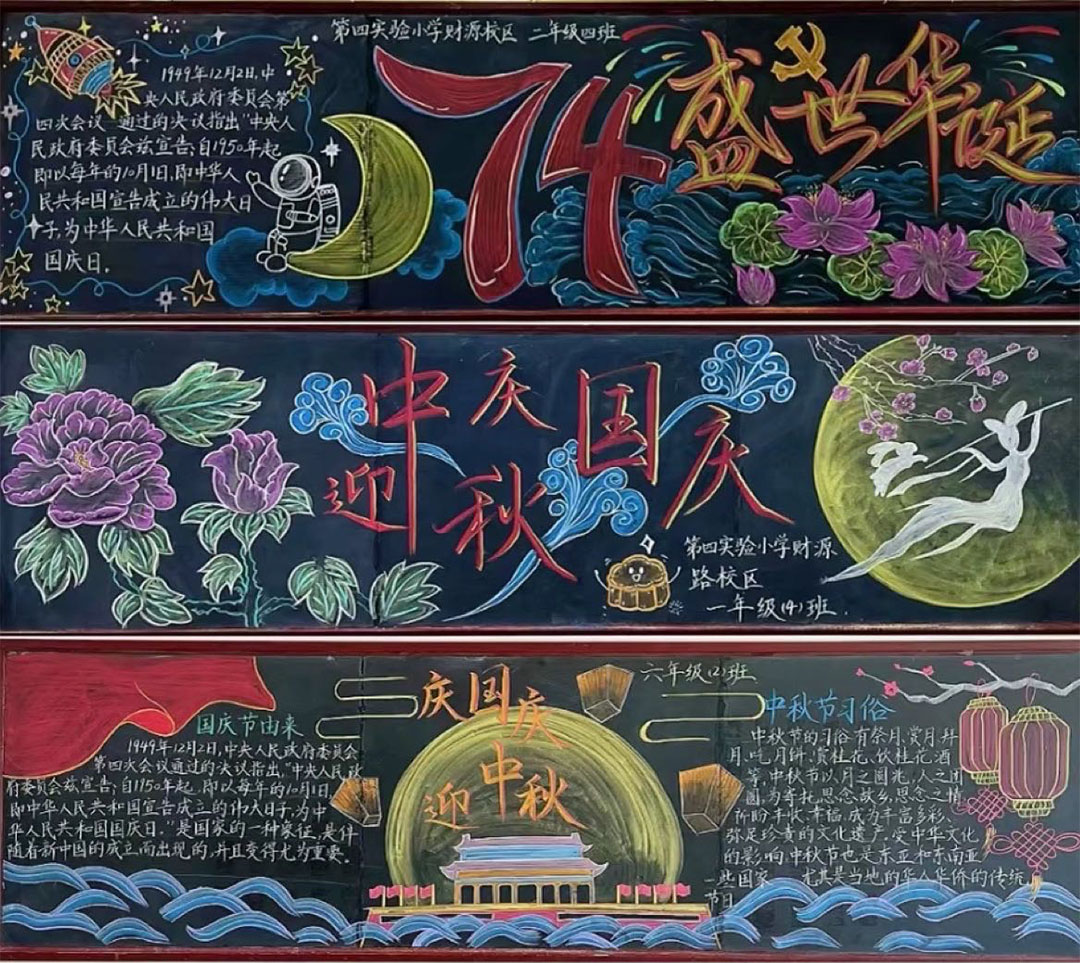 第四实验小学财源校区 二年级四班
1949年12月2日,中
央人民政府委员会第
四次会议 通过的决议指出"中央人
民政府委员会兹宣告:自1950年起
即以每年的10月1日,即中华人
民共和国宣告成立的伟大日
子,为中华人民共和国
国庆日。
74
盛世华诞
迎中秋
庆国庆
第四实验小学财源
路校区
一年级(4)班.
六年级(2)班
庆国庆
迎中秋
国庆节由来
1949年12月2日,中央人民政府委员会
第四次会议通过的决议指出,"中央人民政
府委员会兹宣告:自1150年起,即以每年的10月1日
即中华人民共和国宣告成立的伟大日子,为中
华人民共和国国庆日。"是国家的一种象征,是伴
随着新中国的成立而出现的,并且变得尤为重要。
中秋节习俗
中秋节的习俗有祭月,赏月,拜
月、吃月饼、赏桂花、饮桂花酒
等,中秋节以月之圆兆人之团
圆,为寄托思念故乡,思念之情
祈盼丰收、幸福,成为丰富多彩、
弥足珍贵的文化遗产,受中华文化
的影响中秋节也是东亚和东南亚
一些国家 尤其是当地的华人华侨的传统
节日